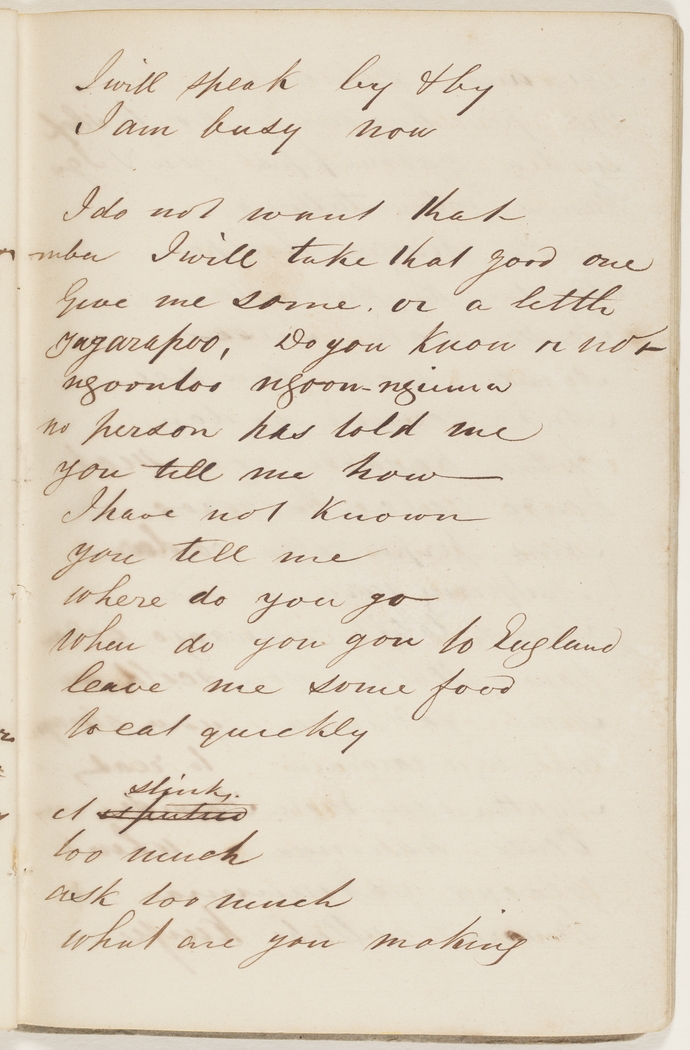 I will speak by & by
I am busy now
I do not want that
I will take that good one
Give me some. or a little
Do you know or not
ngoontoo
no person has told me
you tell me how
I have not known
you tell me
where do you go
when do you gon to England
leave me some food
to eat quickly
stinks.
it
too much
ask too much
what are you making